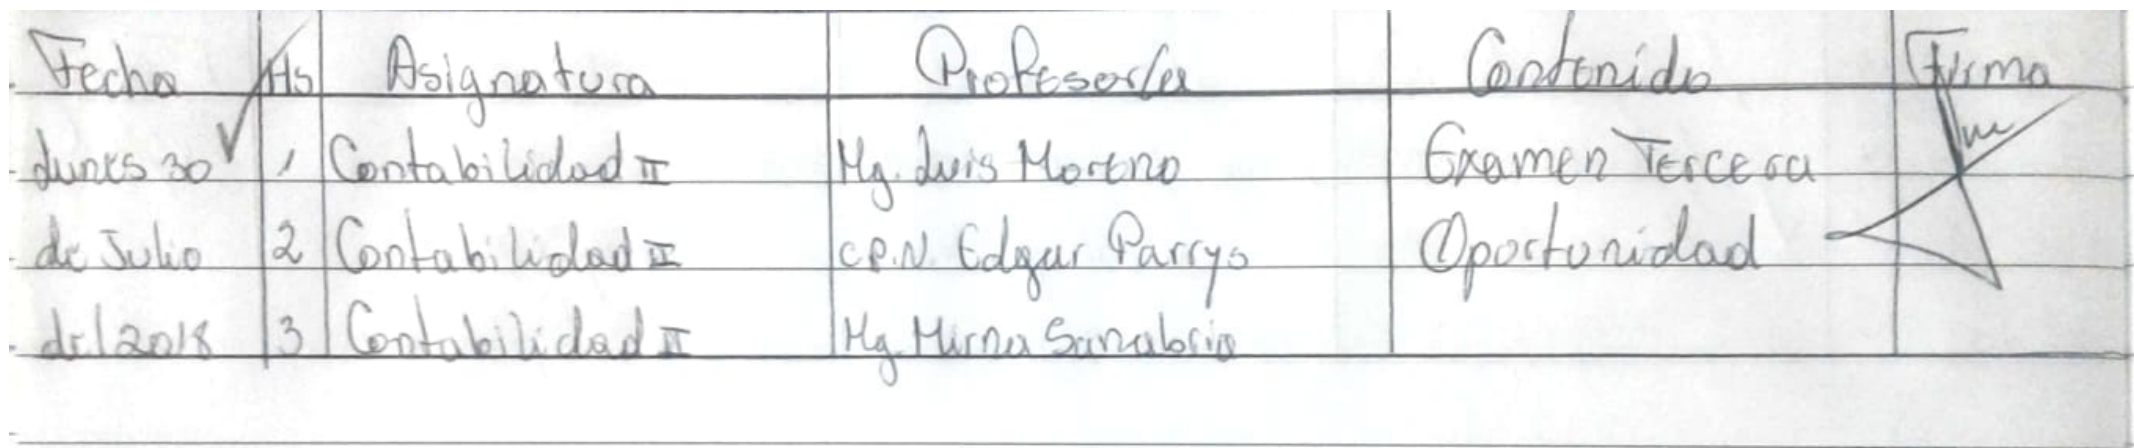 Fecha Hs Asignatura Profesor/a Contenido Firma
Lunes 30 1 Contabilidad II Mg. Luis Moreno Examen Tercera
de Julio 2 Contabilidad II C.P.N. Edgar Parrys Oportunidad
del 2018 3 Contabilidad II Mg. Mirna Sanabria